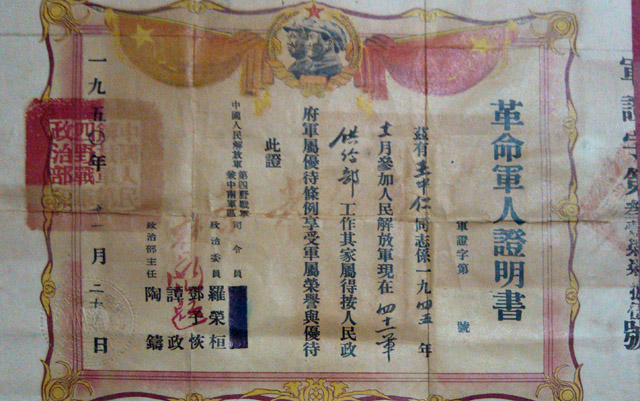 軍證字第
革命軍人證明書
軍證字第 號
茲有王中仁同志係一九四五年
月參加人民解放軍現在四十軍
供給部工作其家屬得按人民政
府軍屬優待條例享受軍屬榮譽與優待
此證
中國人民解放軍第四野戰軍兼中南軍區
司令員
政治委員 羅榮桓
鄧子恢
譚政
政治部主任 陶鑄
一九五〇年十一月二十日
四野戰
政治部